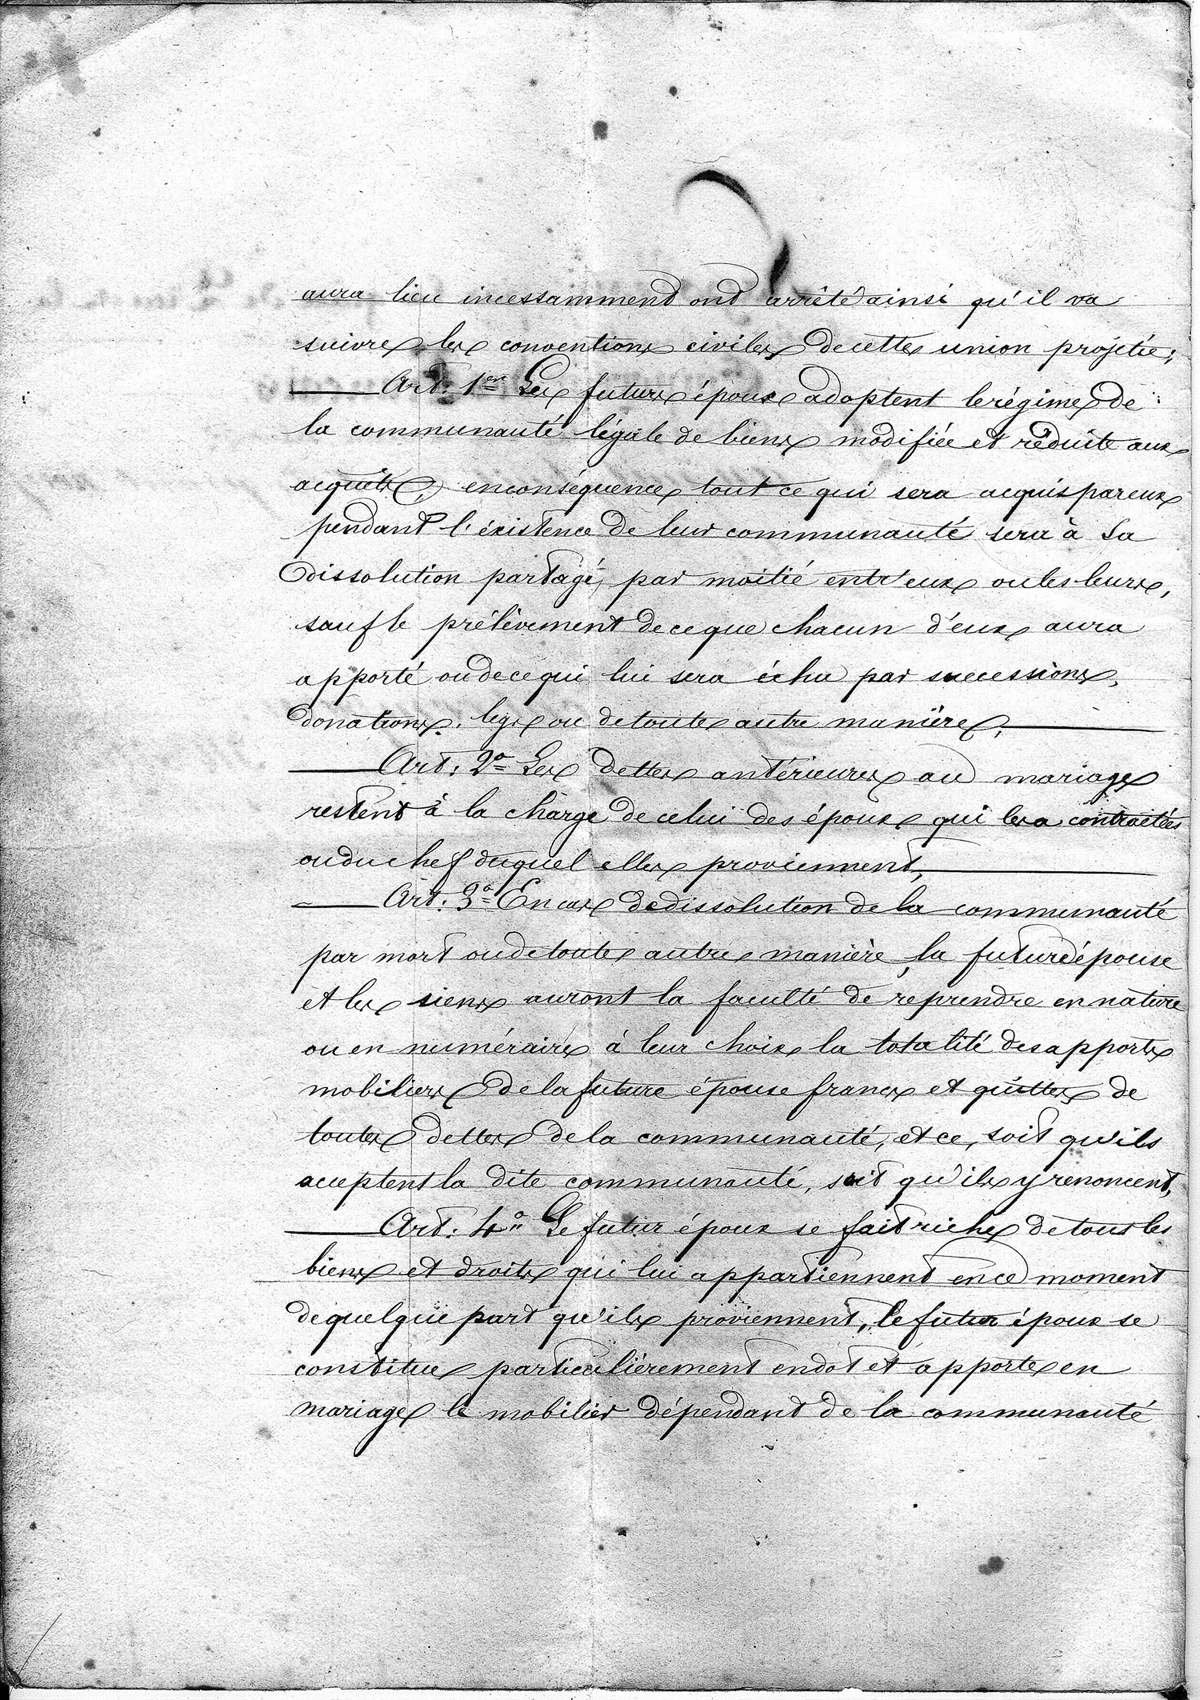 aura lieu incessamment ont arrêté ainsi qu'il va
suivre les conventions civiles de cette union projetée;
Art. 1er Les futurs époux adoptent le régime de
la communauté légale de biens modifiée et réduite aux
acquêts, en conséquence tout ce qui sera acquis par eux
pendant l'éxistence de leur communauté sera à sa
dissolution partagé, par moitié entr'eux ou les leurs,
sauf le prélèvement de ce que chacun d'eux aura
apporté ou de ce qui lui sera échu par successions,
donations, legs ou de toute autre manière,
Art. 2o Les dettes antérieures au mariage
restent à la charge de celui des époux qui les a contractées
ou du chef duquel elles proviennent,
Art. 3o En cas de dissolution de la communauté
par mort ou de toute autre manière, la future épouse
et les siens auront la faculté de reprendre en nature
ou en numéraire à leur choix la totalité des apports
mobiliers de la future épouse francs et quittes de
toutes dettes de la communauté, et ce, soit qu'ils
acceptent la dite communauté, soit qu'ils y renoncent,
Art. 4o Le futur époux se fait riche de tous les
biens et droits qui lui appartiennent en ce moment
de quelque part qu'ils proviennent, le futur époux se
constitue particulièrement en dot et apporte en
mariage le mobilier dépendant de la communauté